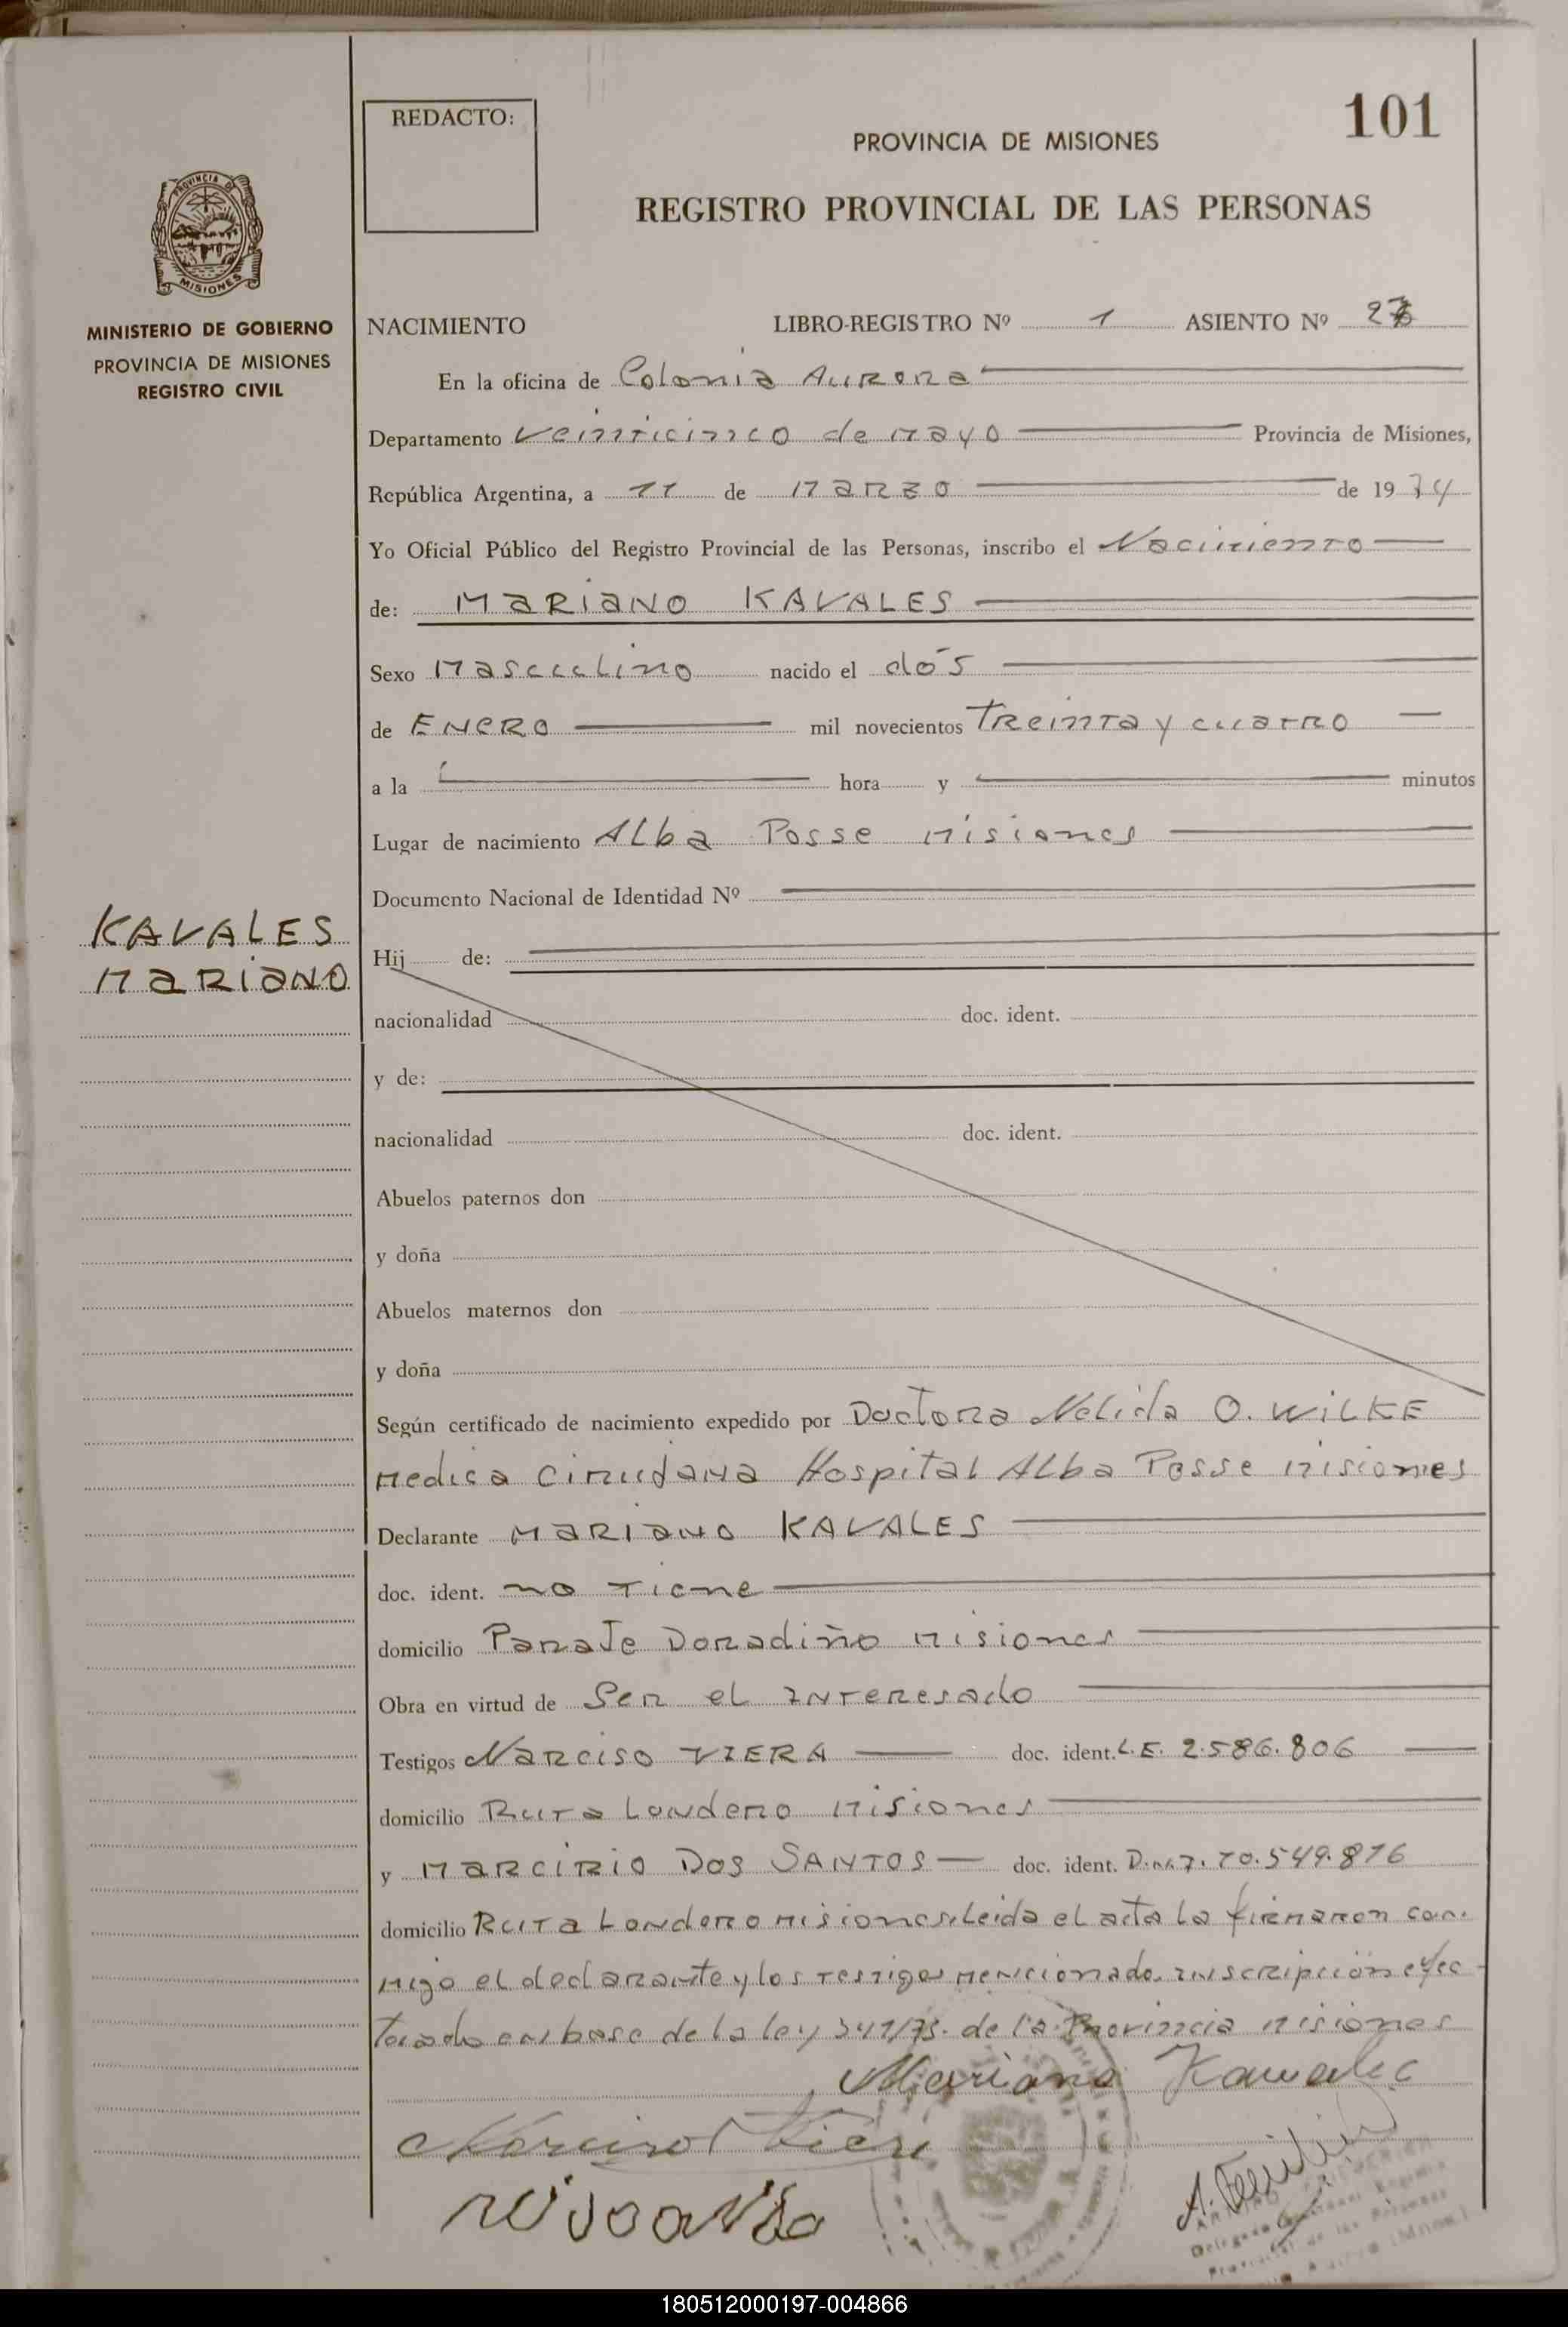 REDACTO:
101
PROVINCIA DE MISIONES
REGISTRO PROVINCIAL DE LAS PERSONAS
PROVINCIA DE
MISIONES
MINISTERIO DE GOBIERNO
PROVINCIA DE MISIONES
REGISTRO CIVIL
NACIMIENTO LIBRO-REGISTRO Nº 1 ASIENTO Nº
En la oficina de Colonia Aurora
Departamento veinticinco de mayo Provincia de Misiones,
República Argentina, a 11 de Marzo de 1974
Yo Oficial Público del Registro Provincial de las Personas, inscribo el Nacimiento
de: MARIANO KAVALES
Sexo Masculino nacido el dós
de ENERO mil novecientos Treinta y cuatro
a la hora y minutos
Lugar de nacimiento Alba Posse Misiones
Documento Nacional de Identidad Nº
KAVALES
MARIANO
Hij de:
nacionalidad doc. ident.
y de:
nacionalidad doc. ident.
Abuelos paternos don
y doña
Abuelos maternos don
y doña
Según certificado de nacimiento expedido por Doctora Nelida O. WILKE
Medica Cirujana Hospital Alba Posse Misiones
Declarante MARIANO KAVALES
doc. ident. no Tiene
domicilio Paraje Doradiño Misiones
Obra en virtud de Ser el Interesado
Testigos Narciso VIERA doc. ident. L.E. 2.586.806
domicilio Ruta Londero Misiones
y MARCIRIO DOS SANTOS doc. ident. D.N.I. 10.549.816
domicilio Ruta Londero Misiones. Leida el acta la firmaron con-
migo el declarante y los testigos mencionado. Inscripción efec-
tuado en base de la ley 341/73. de la Provincia Misiones
Mariano Kawalec
Narciso Viera
Delegado
180512000197-004866